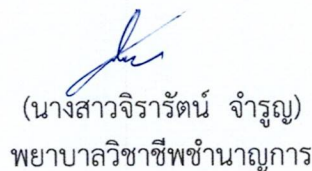 (นางสาวจิรารัตน์ จำรูญ)
พยาบาลวิชาชีพชำนาญการ